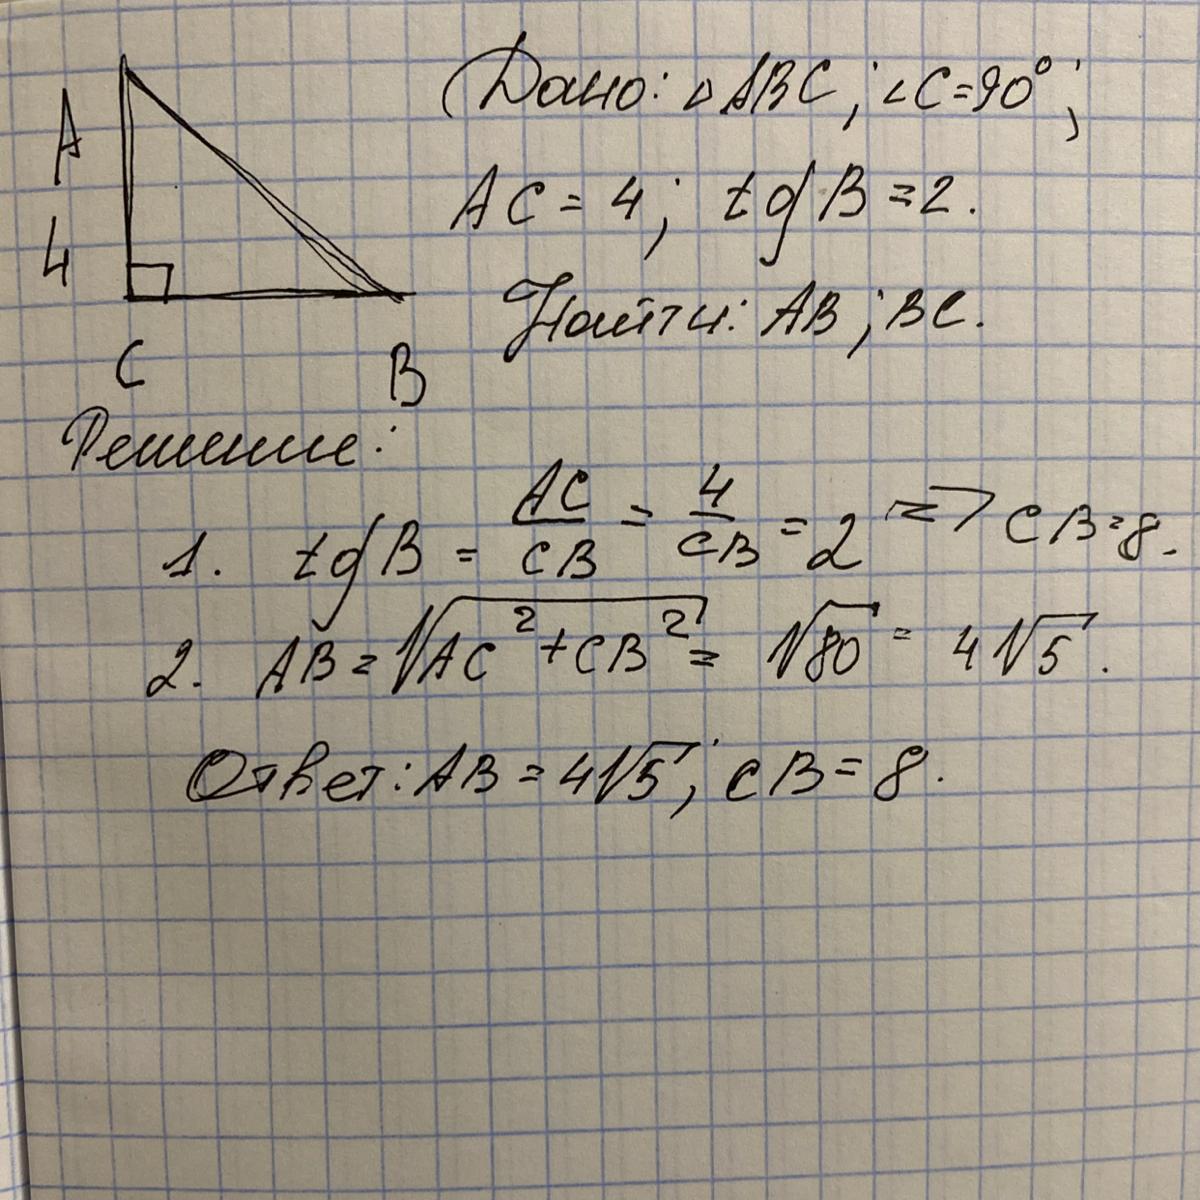 Дано: △ABC; ∠C=90°;
A
AC = 4; tg B = 2.
4
Найти: AB; BC.
C B
Решение:
1. tg B = AC/CB = 4/CB = 2 => CB = 8.
2. AB = √(AC²+CB²) = √80 = 4√5.
Ответ: AB = 4√5; CB = 8.